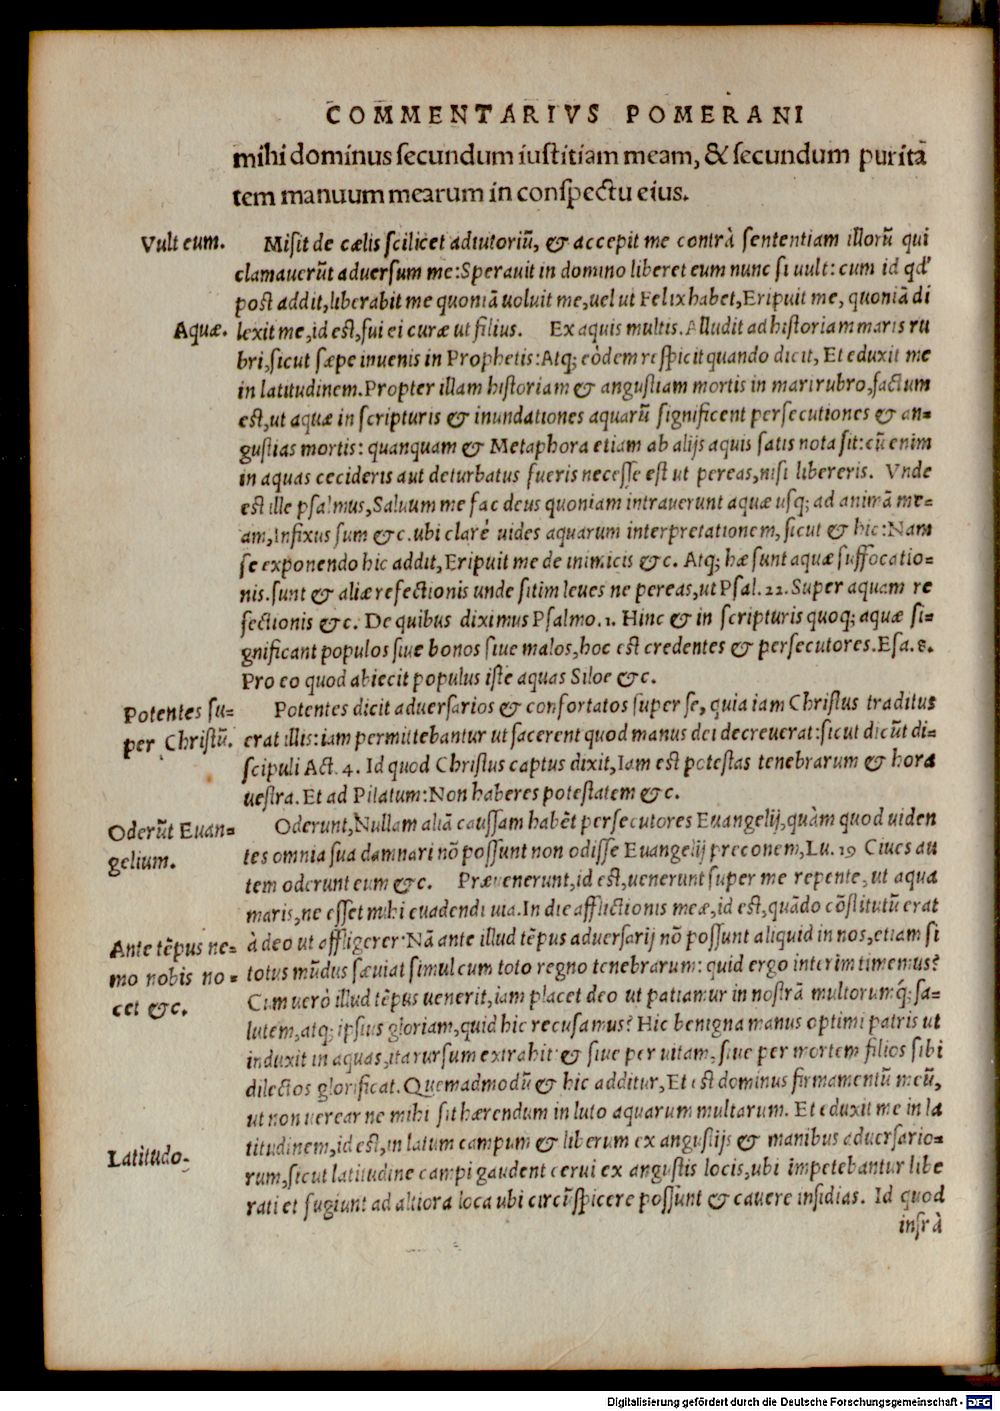 COMMENTARIVS POMERANI
mihi dominus secundum iustitiam meam, & secundum puritā
tem manuum mearum in conspectu eius.
Vult eum.
Misit de cælis scilicet adiutoriū, & accepit me contrà sententiam illorū qui
clamauerūt aduersum me: Sperauit in domino liberet eum nunc si uult: cum id qd'
post addit, liberabit me quoniā uoluit me, uel ut Felix habet, Eripuit me, quoniā di
Aquæ.
lexit me, id est, fui ei curæ ut filius. Ex aquis multis. Alludit ad historiam maris ru
bri, sicut sæpe inuenis in Prophetis: Atq; eòdem respicit quando dicit, Et eduxit me
in latitudinem. Propter illam historiam & angustiam mortis in mari rubro, factum
est, ut aquæ in scripturis & inundationes aquarū significent persecutiones & an=
gustias mortis: quanquam & Metaphora etiam ab alijs aquis satis nota sit: cū enim
in aquas cecideris aut deturbatus fueris necesse est ut pereas, nisi libereris. Vnde
est ille psalmus, Saluum me fac deus quoniam intrauerunt aquæ usq; ad animā me=
am, Infixus sum &c. ubi clarè uides aquarum interpretationem, sicut & hic: Nam
se exponendo hic addit, Eripuit me de inimicis &c. Atq; hæ sunt aquæ suffocatio=
nis. sunt & aliæ refectionis unde sitim leues ne pereas, ut Psal. 22. Super aquam re
fectionis &c. De quibus diximus Psalmo. 1. Hinc & in scripturis quoq; aquæ si=
gnificant populos siue bonos siue malos, hoc est credentes & persecutores. Esa. 8.
Pro eo quod abiecit populus iste aquas Siloe &c.
Potentes su=
per Christū.
Potentes dicit aduersarios & confortatos super se, quia iam Christus traditus
erat illis: iam permittebantur ut facerent quod manus dei decreuerat: sicut dicūt di=
scipuli Act. 4. Id quod Christus captus dixit, Iam est potestas tenebrarum & hora
uestra. Et ad Pilatum: Non haberes potestatem &c.
Oderūt Euan=
gelium.
Oderunt, Nullam aliā caussam habēt persecutores Euangelij, quàm quod uiden
tes omnia sua damnari nō possunt non odisse Euangelij preconem, Lu. 19 Ciues au
tem oderunt eum &c. Præuenerunt, id est, uenerunt super me repente, ut aqua
maris, ne esset mihi euadendi uia. In die afflictionis meæ, id est, quādo cōstitutū erat
Ante tēpus ne=
mo nobis no=
cet &c.
à deo ut affligerer: Nā ante illud tēpus aduersarij nō possunt aliquid in nos, etiam si
totus mūdus sæuiat simul cum toto regno tenebrarum: quid ergo interim timemus?
Cum uerò illud tēpus uenerit, iam placet deo ut patiamur in nostrā multorumq́; sa=
lutem, atq; ipsius gloriam, quid hic recusamus? Hic benigna manus optimi patris ut
induxit in aquas, ita rursum extrahit & siue per uitam, siue per mortem filios sibi
dilectos glorificat. Quemadmodū & hic additur, Et est dominus firmamentū meū,
ut non uerear ne mihi sit hærendum in luto aquarum multarum. Et eduxit me in la
Latitudo.
titudinem, id est, in latum campum & liberum ex angustijs & manibus aduersario=
rum, sicut latitudine campi gaudent cerui ex angustis locis, ubi impetebantur libe
rati et fugiunt ad altiora loca ubi circūspicere possunt & cauere insidias. Id quod
infrà
Digitalisierung gefördert durch die Deutsche Forschungsgemeinschaft - DFG